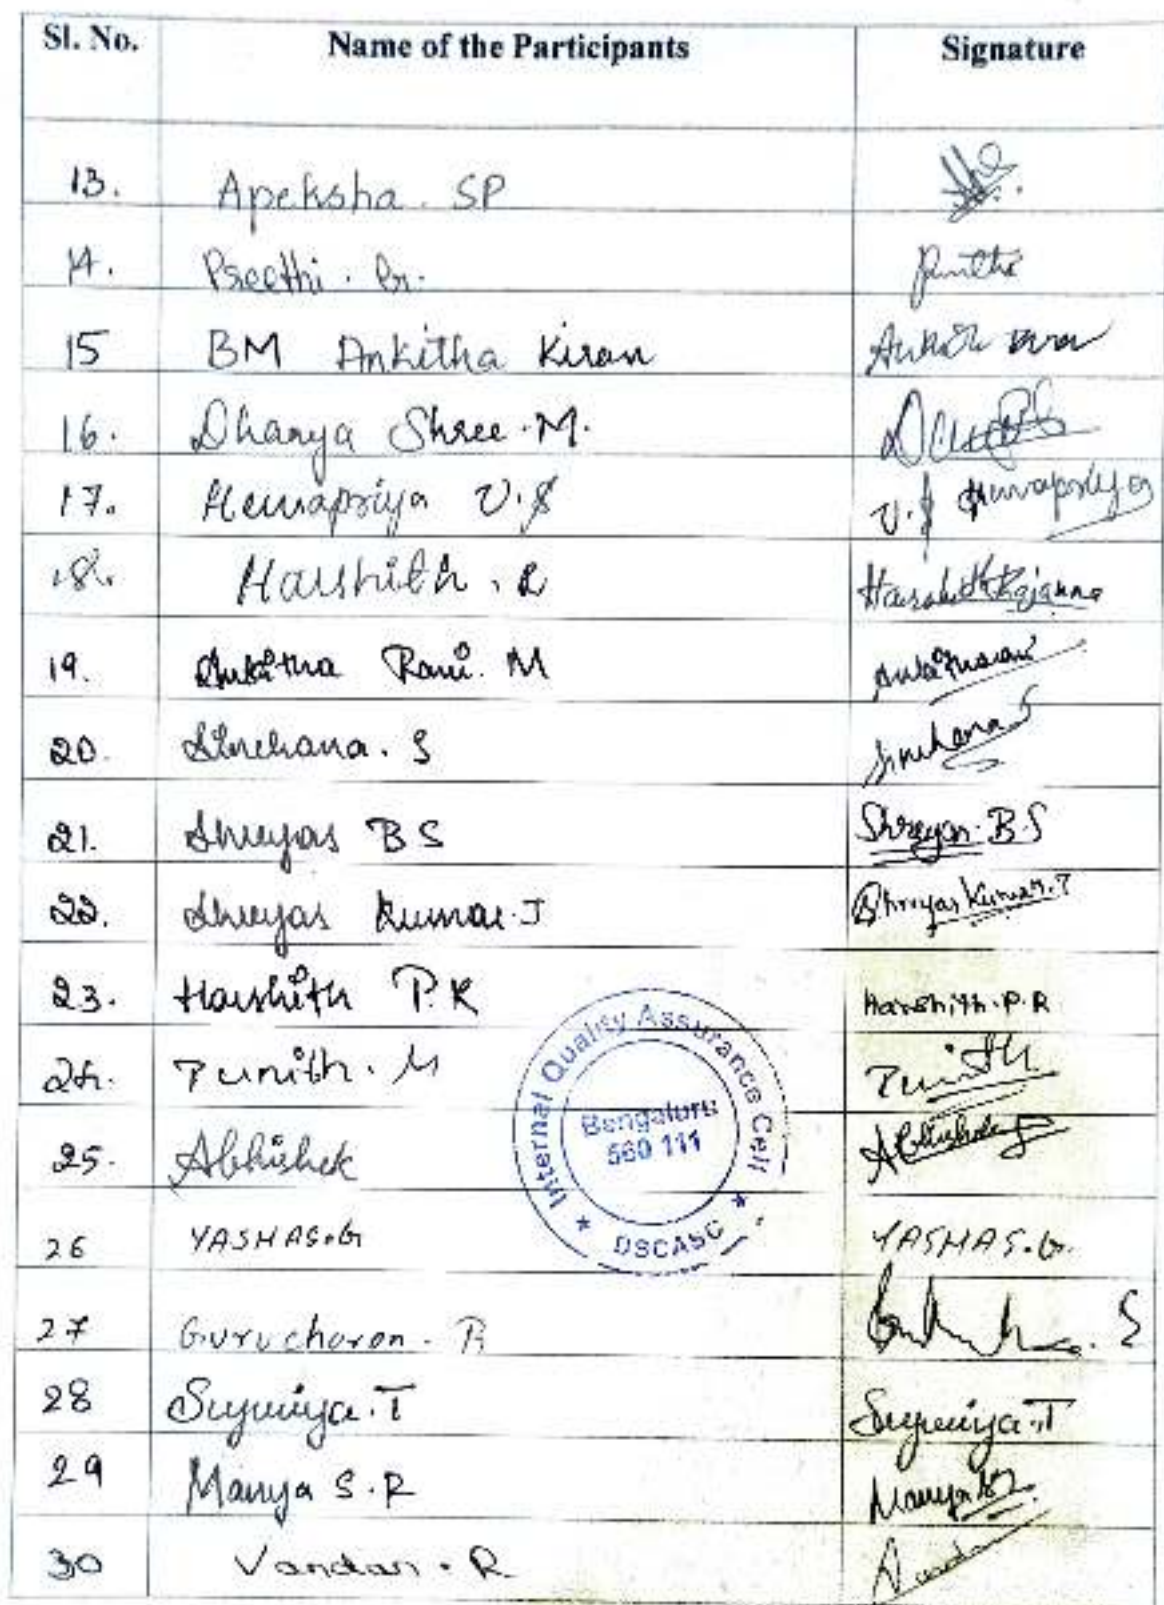 Sl. No. Name of the Participants Signature
13. Apeksha. SP
14. Preethi. G. Preethi
15 BM Ankitha Kiran Ankitha Kiran
16. Dhanya Shree. M.
17. Hemapriya V.S V.S Hemapriya
18. Harshith. R Harshith Rajanna
19. Ankitha Rani. M Ankitharani
20. Sinchana. S Sinchana S
21. Shreyas BS Shreyas. B.S
22. Shreyas Kumar. J Shreyas Kumar. J
23. Harshith P.R Harshith. P. R
24. Punith. M Punith
25. Abhishek Abhishek
26 YASHAS.G YASHAS.G.
27 Gurucharan. R
28 Supriya. T Supriya. T
29 Manya S.R Manya SR
30 Vandan. R
Internal Quality Assurance Cell
Bengaluru
560 111
★ DSCASC ★